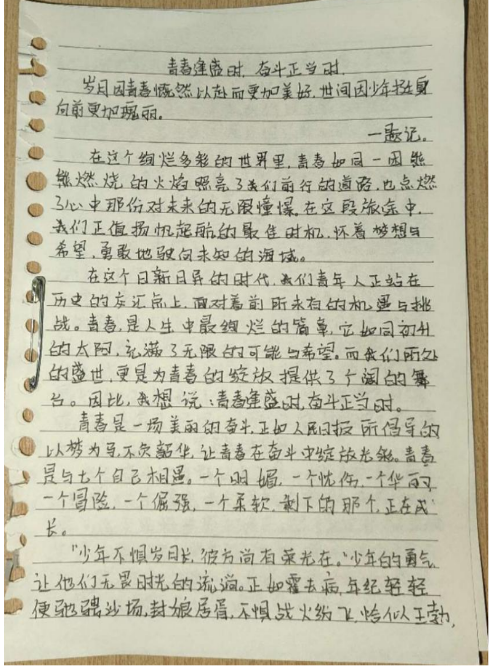 青春逢盛时,奋斗正当时.
岁月因青春慨然以赴而更加美好,世间因少年挺身
向前更加瑰丽。
一题记。
在这个绚烂多彩的世界里,青春如同一团熊
熊燃烧的火焰照亮了我们前行的道路,也点燃
了心中那份对未来的无限憧憬,在这段旅途中,
我们正值扬帆起航的最佳时机,怀着梦想与
希望,勇敢地驶向未知的海域。
在这个日新月异的时代,我们青年人正站在
历史的交汇点上,面对着前所未有的机遇与挑
战。青春,是人生中最绚烂的篇章,它如同初升
的太阳,充满了无限的可能与希望。而我们所处
的盛世,更是为青春的绽放提供了广阔的舞
台。因此,我想说:青春逢盛时,奋斗正当时。
青春是一场美丽的奋斗,正如人民日报所倡导的
以梦为马,不负韶华,让青春在奋斗中绽放光彩。青春
是与七个自己相遇。一个明媚,一个忧伤,一个华丽,
一个冒险,一个倔强,一个柔软,剩下的那个,正在成
长。
"少年不惧岁月长,彼方尚有荣光在。"少年的勇气,
让他们无畏时光的流淌。正如霍去病,年纪轻轻
便驰骋沙场,封狼居胥,不惧战火纷飞,恰似王勃,